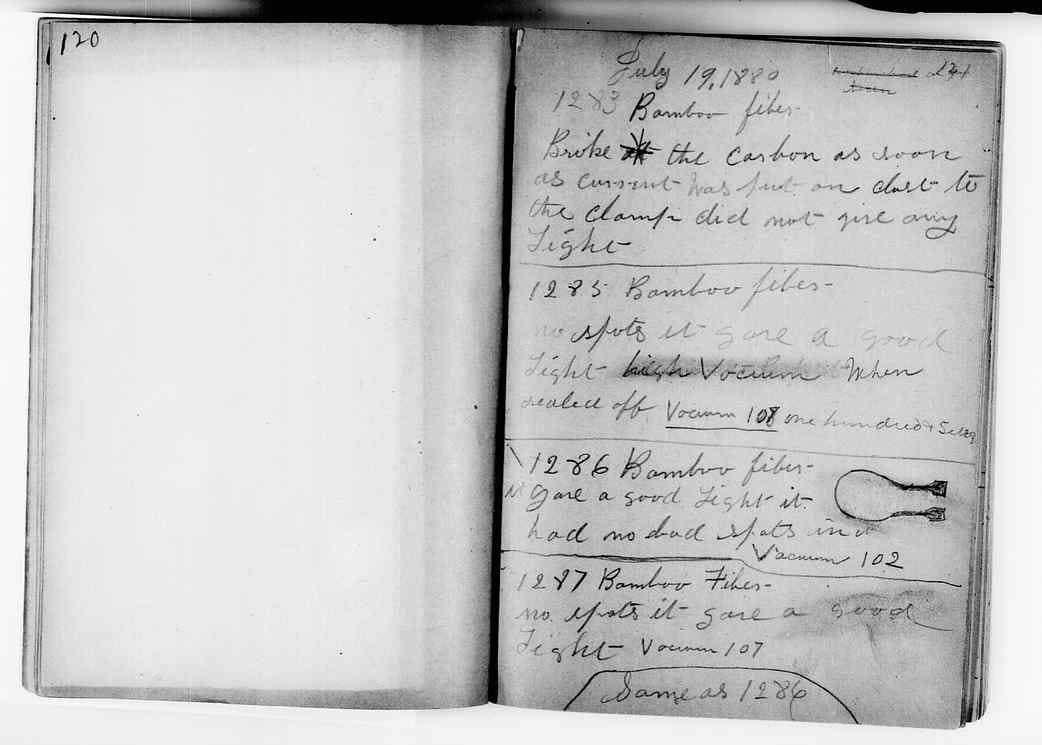 120
July 19, 1880
1283 Bamboo fiber
Broke the carbon as soon
as current was put on clost to
the clamp did not give any
Light
1285 Bamboo fiber
no spots it gave a good
Light high Vacuum When
sealed off. Vacuum 108 one hundred &
1286 Bamboo fiber
it gave a good Light it
had no bad spots in it
Vacuum 102
1287 Bamboo Fiber
no spots it gave a good
Light Vacuum 107
Same as 1286